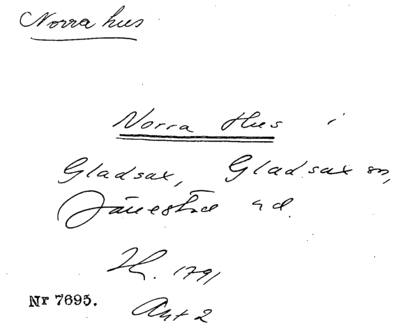 Norra hus
Norra Hus i
Gladsax, Gladsax sn,
Järrestad hd.
Jb. 1791
Nr 7695.
Ant 2